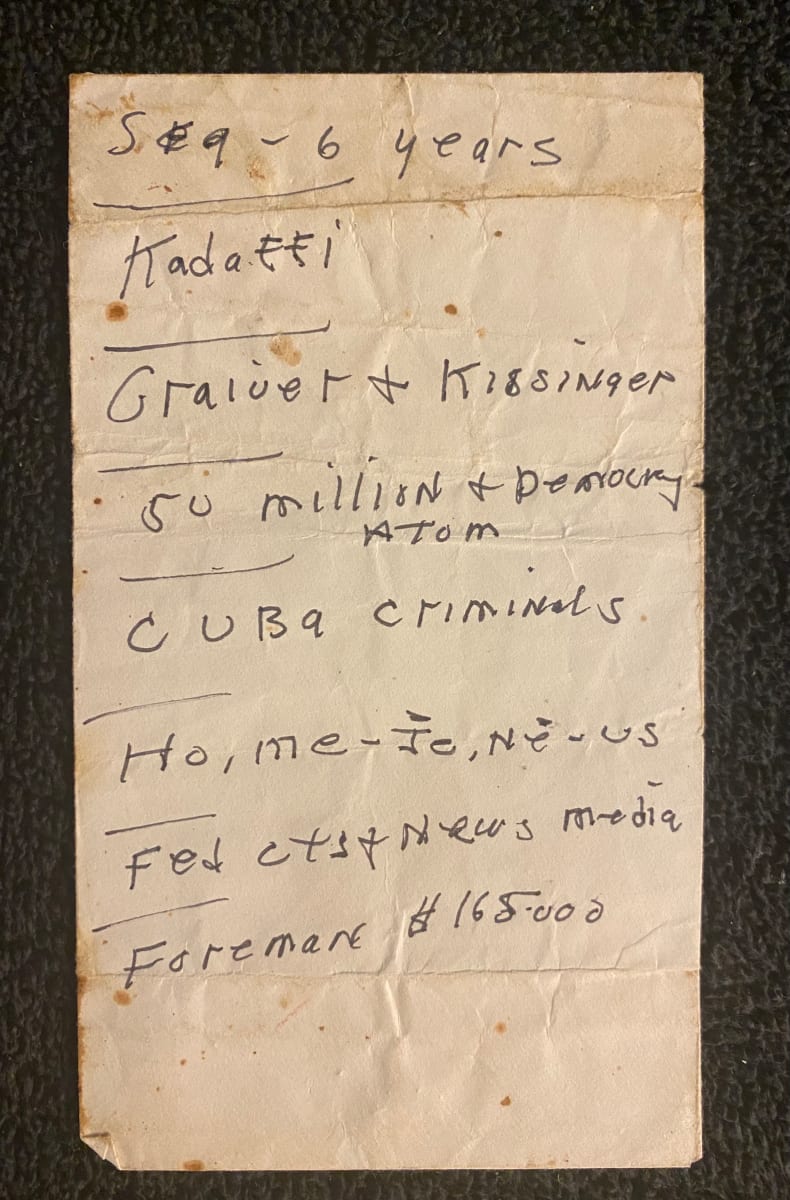 Seg - 6 years
Kadaffi
Graiver + Kissinger
50 million + Democracy
Atom
CUBa criminals
Ho, me - Je, Ne - us
Fed cts + News media
Foreman $165.000